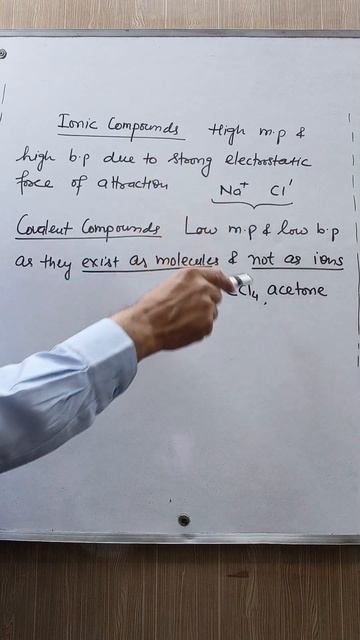 Ionic Compounds High m.p &
high b.p due to strong electrostatic
force of attraction Na⁺ Cl⁻
Covalent Compounds Low m.p & low b.p
as they exist as molecules & not as ions
CCl₄, acetone